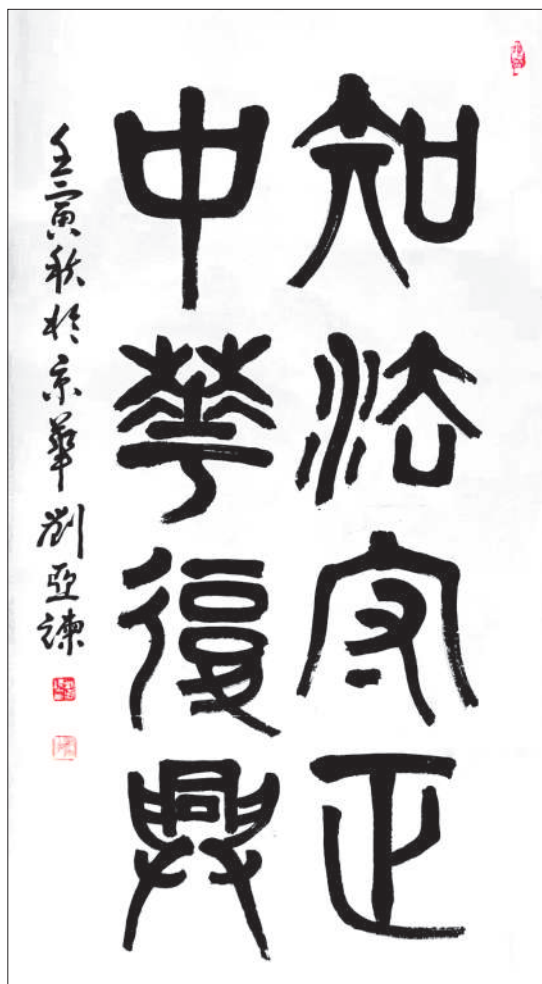 知法守正
中華復興
壬寅秋於京華劉亞諫